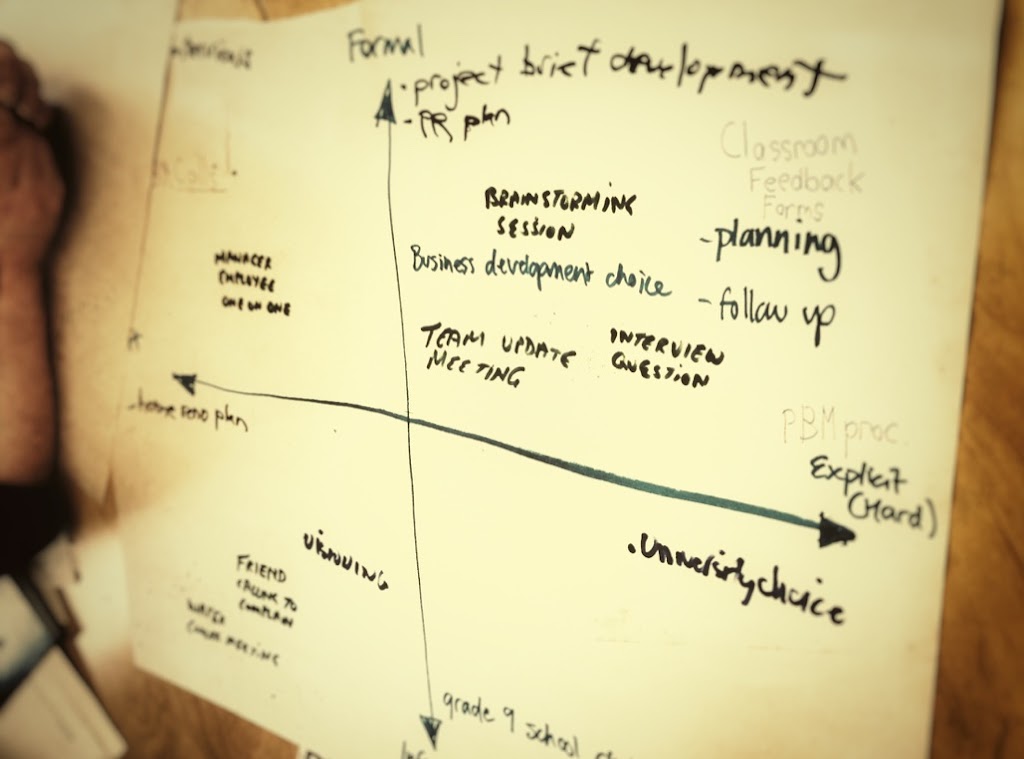 Formal
• project brief development
- PR plan
Classroom
Feedback
Forms
BRAINSTORMING
SESSION
- planning
Business development choice
- follow up
MANAGER
EMPLOYEE
ONE ON ONE
TEAM UPDATE
MEETING
INTERVIEW
QUESTION
- home reno plan
PBM proc.
Explicit
(Hard)
• University choice
VISIONING
FRIEND
CALLING TO
COMPLAIN
WATER
COOLER MEETING
grade 9 school